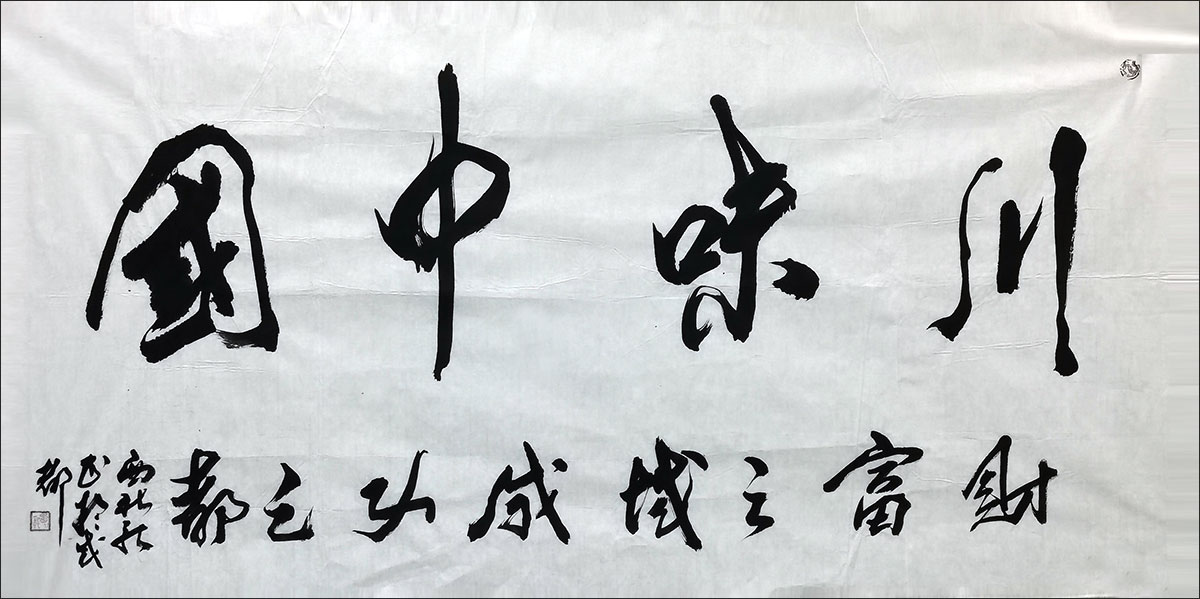 川味中國
財富之城成功之都